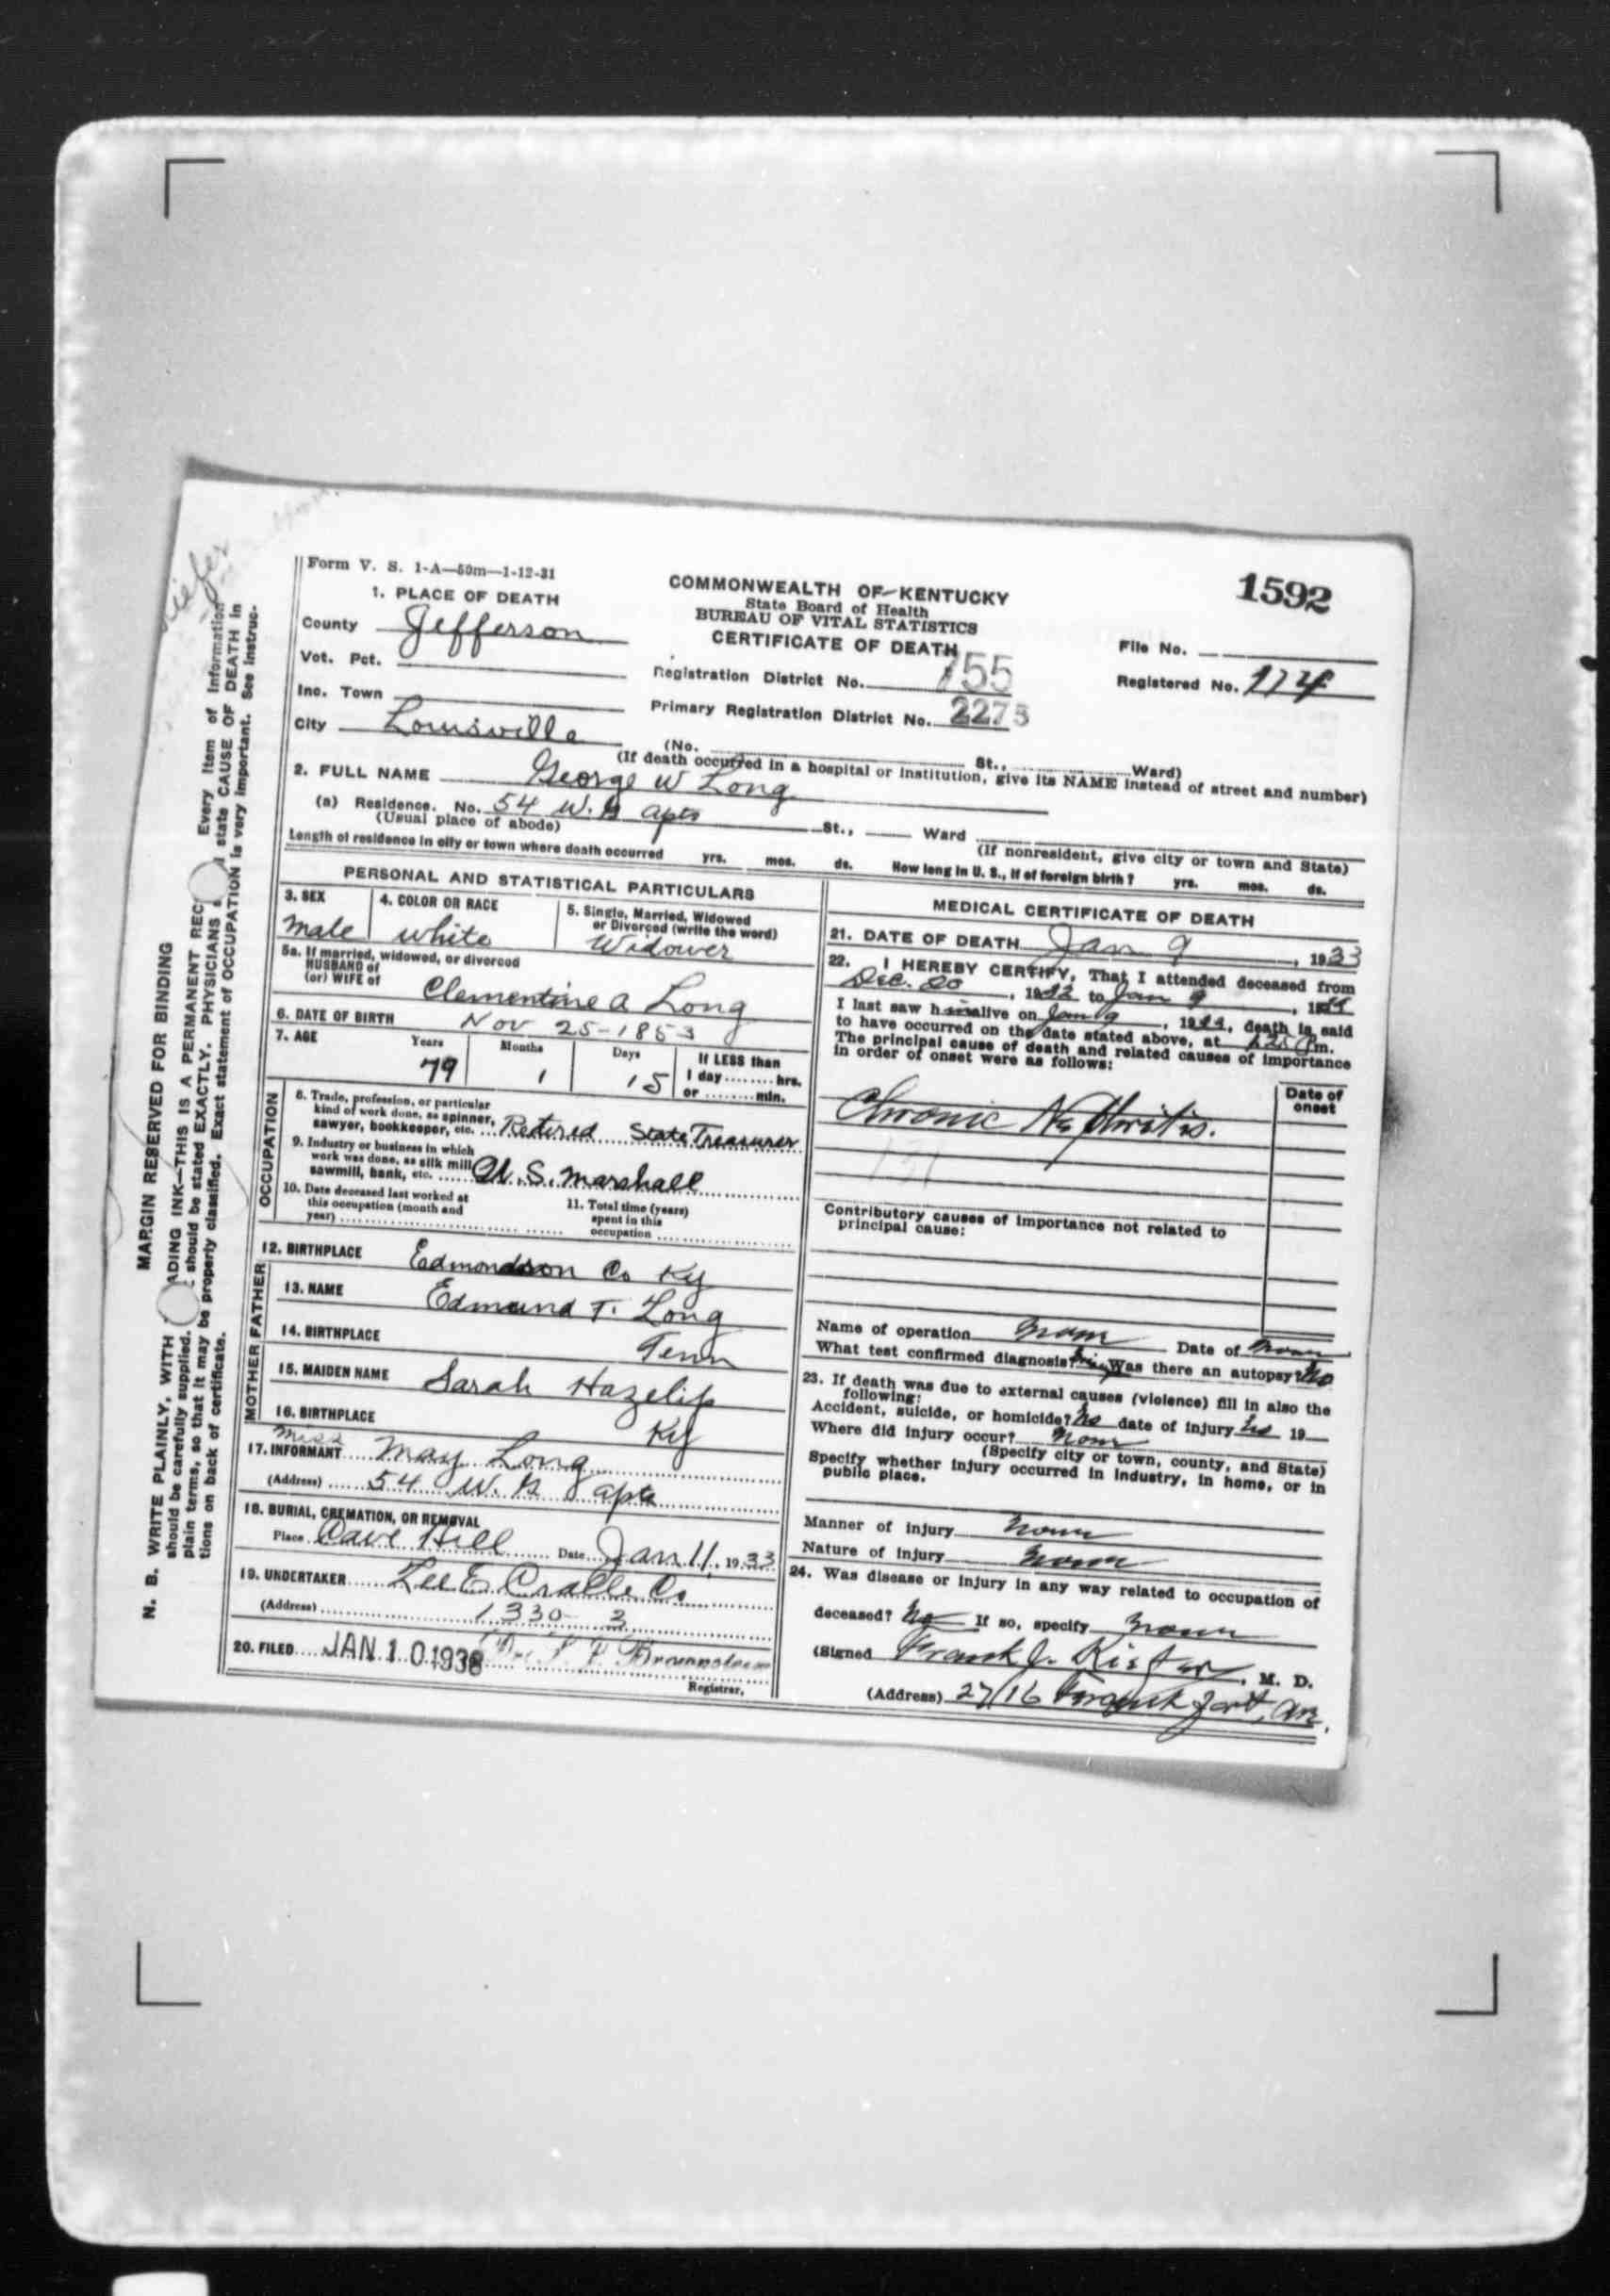 1592
Form V. S. 1-A—50m—1-12-31
COMMONWEALTH OF KENTUCKY
State Board of Health
BUREAU OF VITAL STATISTICS
CERTIFICATE OF DEATH
1. PLACE OF DEATH
County Jefferson
Vot. Pct.
Inc. Town
City Louisville
Registration District No. 755
Primary Registration District No. 2275
File No.
Registered No. 174
(No. St., Ward)
(If death occurred in a hospital or institution, give its NAME instead of street and number)
2. FULL NAME George W Long
(a) Residence. No. 54 W. B apts St., Ward
(Usual place of abode) (If nonresident, give city or town and State)
Length of residence in city or town where death occurred yrs. mos. ds. How long in U. S., if of foreign birth? yrs. mos. ds.
PERSONAL AND STATISTICAL PARTICULARS
3. SEX
male
4. COLOR OR RACE
white
5. Single, Married, Widowed
or Divorced (write the word)
Widower
5a. If married, widowed, or divorced
HUSBAND of
(or) WIFE of Clementine A Long
6. DATE OF BIRTH Nov 25-1853
7. AGE Years Months Days If LESS than
79 1 15 1 day hrs.
or min.
OCCUPATION
8. Trade, profession, or particular
kind of work done, as spinner,
sawyer, bookkeeper, etc. Retired State Treasurer
9. Industry or business in which
work was done, as silk mill
sawmill, bank, etc. U. S. Marshall
10. Date deceased last worked at
this occupation (month and
year)
11. Total time (years)
spent in this
occupation
12. BIRTHPLACE Edmondson Co Ky
FATHER
13. NAME Edmund T. Long
14. BIRTHPLACE Tenn
MOTHER
15. MAIDEN NAME Sarah Hazelip
16. BIRTHPLACE Ky
17. INFORMANT Miss May Long
(Address) 54 W. B apts
18. BURIAL, CREMATION, OR REMOVAL
Place Cave Hill Date Jan 11, 1933
19. UNDERTAKER Lee E Cralle Co
(Address) 1330- 3
20. FILED JAN 10 1933
Registrar.
MEDICAL CERTIFICATE OF DEATH
21. DATE OF DEATH Jan 9, 1933
22. I HEREBY CERTIFY, That I attended deceased from
Dec. 20, 1932 to Jan 9, 1933
I last saw him alive on Jan 9, 1933, death is said
to have occurred on the date stated above, at Pm.
The principal cause of death and related causes of importance
in order of onset were as follows:
Date of
onset
Chronic Nephritis.
131
Contributory causes of importance not related to
principal cause:
Name of operation None Date of None
What test confirmed diagnosis? Was there an autopsy? No
23. If death was due to external causes (violence) fill in also the
following:
Accident, suicide, or homicide? No date of injury No 19
Where did injury occur? None
(Specify city or town, county, and State)
Specify whether injury occurred in industry, in home, or in
public place.
Manner of injury None
Nature of injury None
24. Was disease or injury in any way related to occupation of
deceased? No If so, specify None
(Signed Frank J. Kiefer, M. D.
(Address) 2716 Frankfort, Av.
MARGIN RESERVED FOR BINDING
N. B. WRITE PLAINLY, WITH ADING INK—THIS IS A PERMANENT REC Every item of information
should be carefully supplied. should be stated EXACTLY. PHYSICIANS state CAUSE OF DEATH in
plain terms, so that it may be properly classified. Exact statement of OCCUPATION is very important. See instruc-
tions on back of certificate.
Kiefer